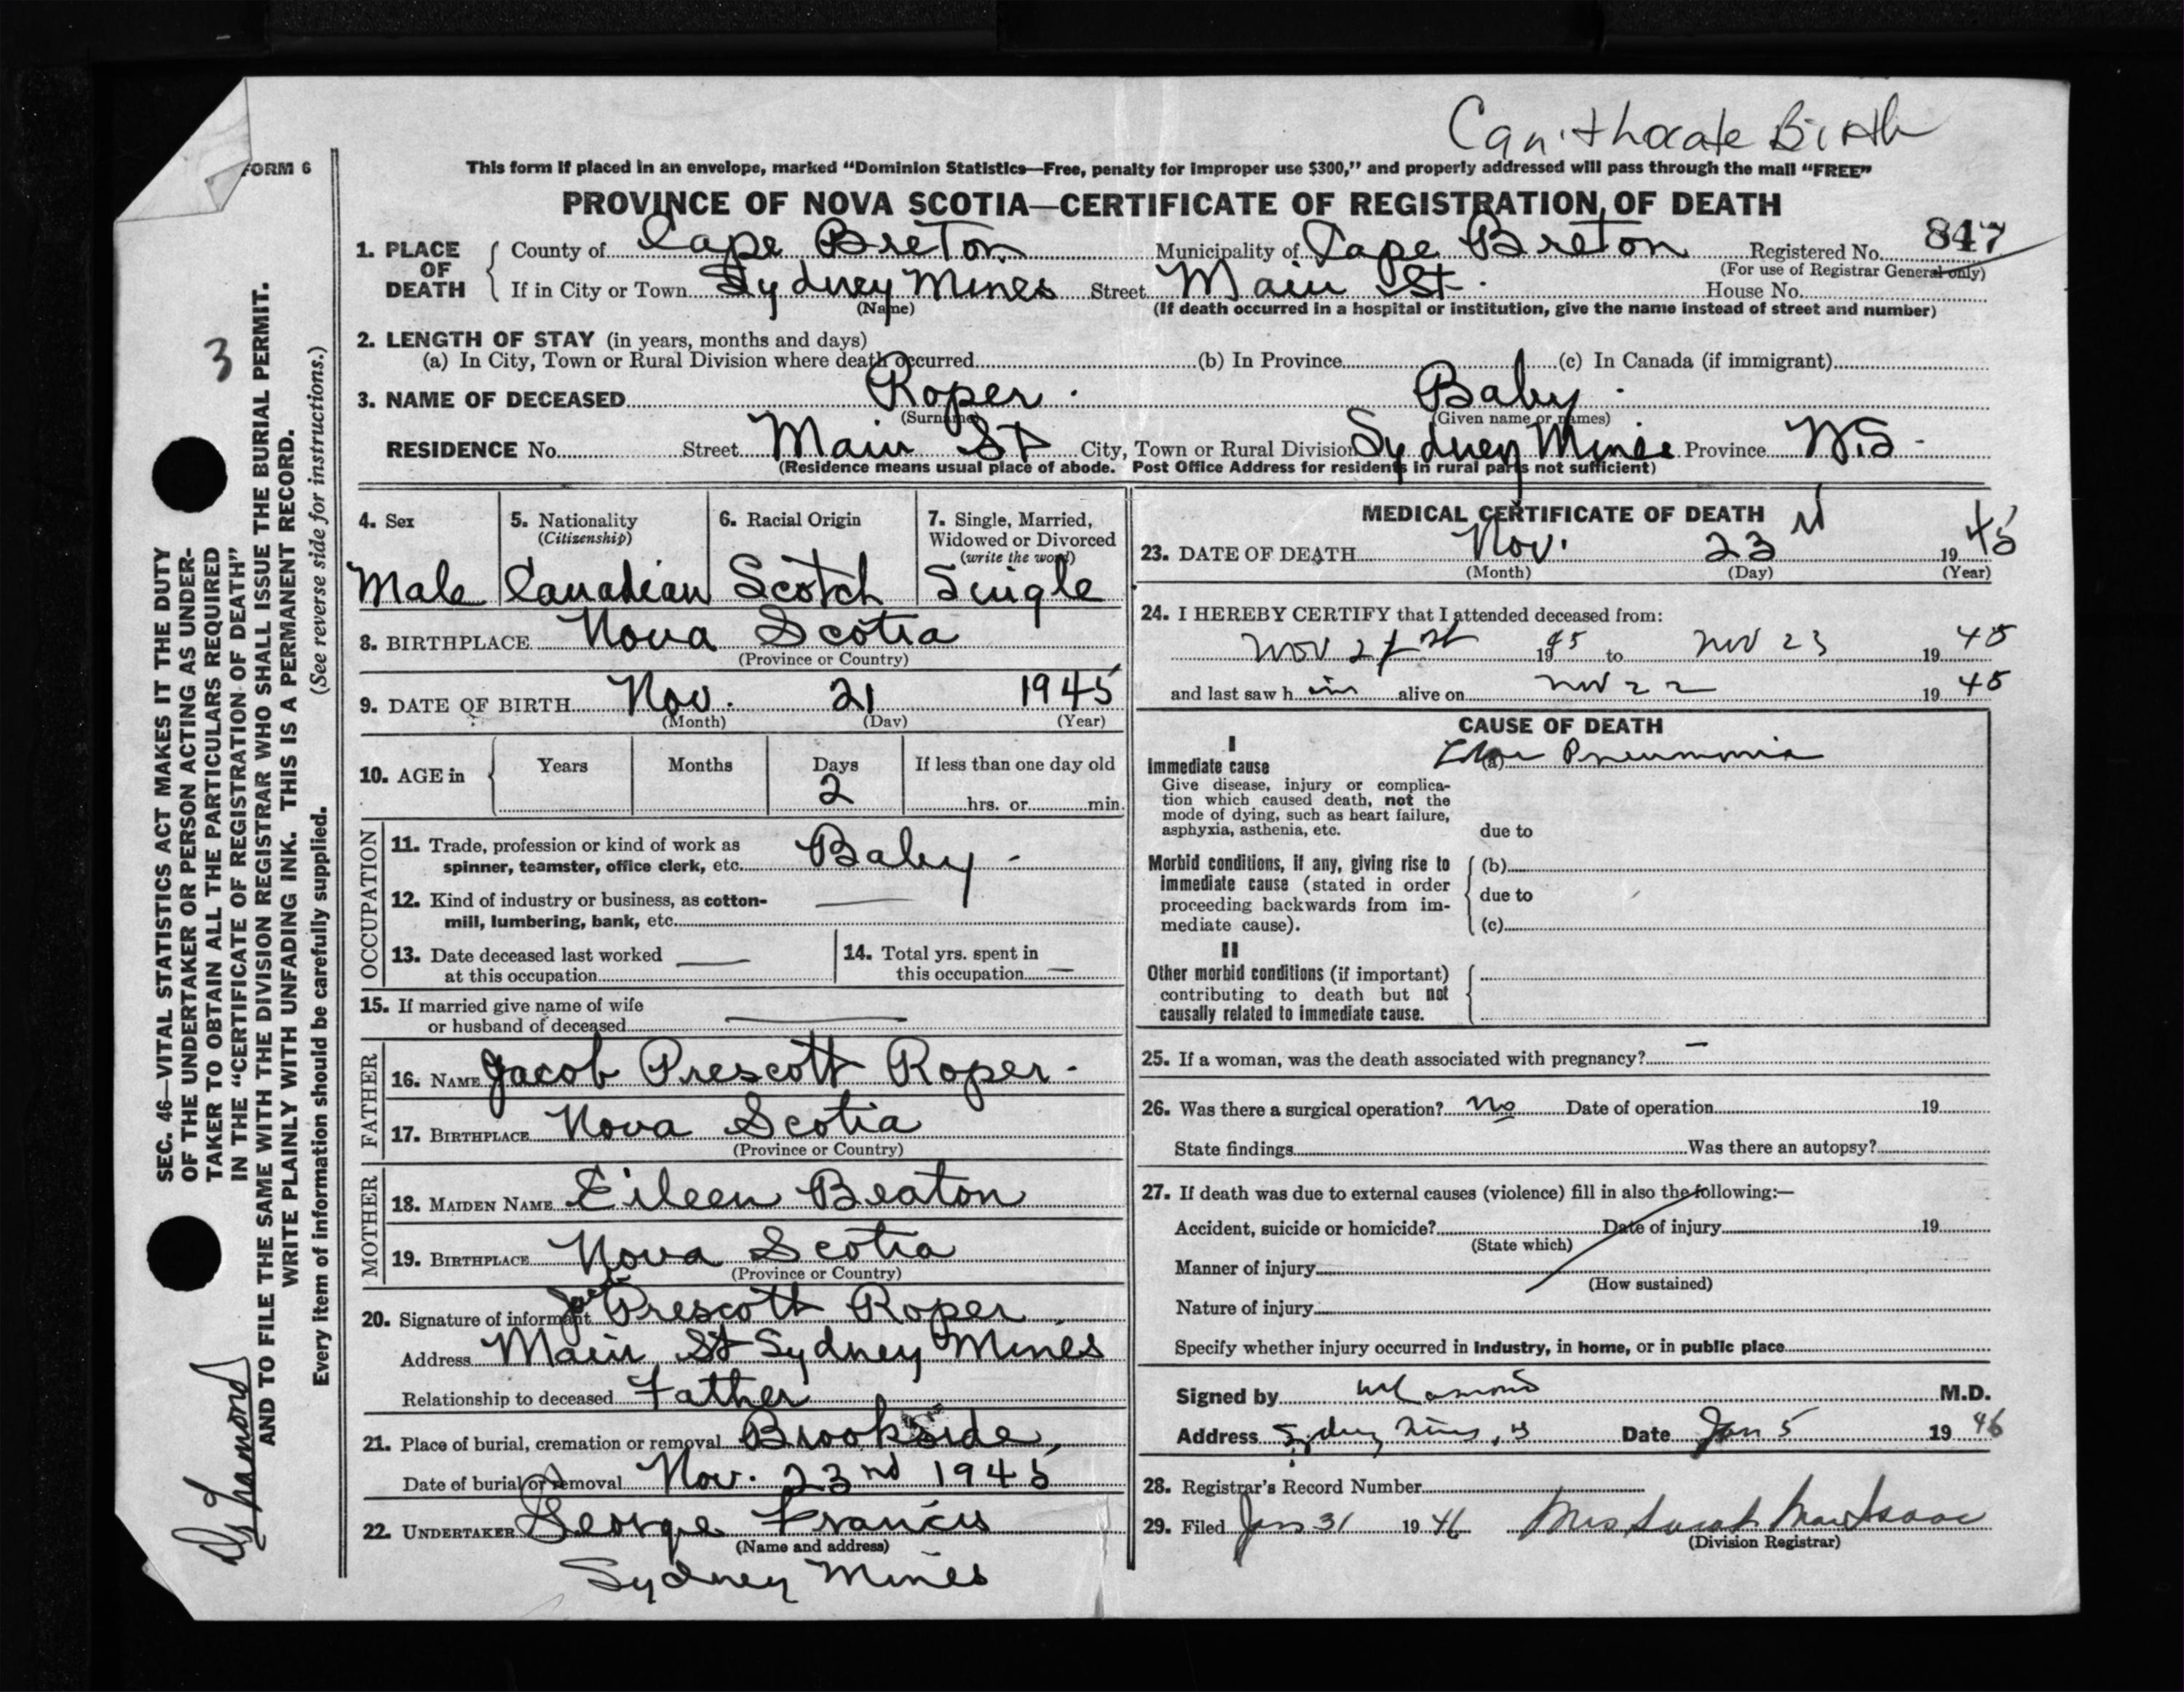 Can't locate Birth
FORM 6
This form if placed in an envelope, marked “Dominion Statistics—Free, penalty for improper use $300,” and properly addressed will pass through the mail “FREE”
PROVINCE OF NOVA SCOTIA—CERTIFICATE OF REGISTRATION OF DEATH
1. PLACE OF DEATH County of Cape Breton Municipality of Cape Breton Registered No. 847
(For use of Registrar General only)
If in City or Town Sydney Mines Street Main St. House No.
(Name) (If death occurred in a hospital or institution, give the name instead of street and number)
2. LENGTH OF STAY (in years, months and days)
(a) In City, Town or Rural Division where death occurred (b) In Province (c) In Canada (if immigrant)
3. NAME OF DECEASED Roper. Baby.
(Surname) (Given name or names)
RESIDENCE No. Street Main St City, Town or Rural Division Sydney Mines Province N.S -
(Residence means usual place of abode. Post Office Address for residents in rural parts not sufficient)
4. Sex 5. Nationality 6. Racial Origin 7. Single, Married,
(Citizenship) Widowed or Divorced
(write the word)
Male Canadian Scotch Single
8. BIRTHPLACE Nova Scotia
(Province or Country)
9. DATE OF BIRTH Nov. 21 1945
(Month) (Day) (Year)
10. AGE in Years Months Days If less than one day old
2 hrs. or min.
OCCUPATION
11. Trade, profession or kind of work as
spinner, teamster, office clerk, etc. Baby -
12. Kind of industry or business, as cotton-
mill, lumbering, bank, etc. —
13. Date deceased last worked — 14. Total yrs. spent in
at this occupation this occupation —
15. If married give name of wife
or husband of deceased —
FATHER
16. NAME Jacob Prescott Roper -
17. BIRTHPLACE Nova Scotia
(Province or Country)
MOTHER
18. MAIDEN NAME Eileen Beaton
19. BIRTHPLACE Nova Scotia
(Province or Country)
20. Signature of informant Prescott Roper
Address Main St Sydney Mines
Relationship to deceased Father
21. Place of burial, cremation or removal Brookside,
Date of burial or removal Nov. 23nd 1945
22. UNDERTAKER George Francis
(Name and address)
Sydney Mines
MEDICAL CERTIFICATE OF DEATH
23. DATE OF DEATH Nov. 23rd 1945
(Month) (Day) (Year)
24. I HEREBY CERTIFY that I attended deceased from:
Nov 21st 1945 to Nov 23 1945
and last saw him alive on Nov 22 1945
CAUSE OF DEATH
I
Immediate cause (a) Pneumonia
Give disease, injury or complica-
tion which caused death, not the
mode of dying, such as heart failure,
asphyxia, asthenia, etc. due to
Morbid conditions, if any, giving rise to (b)
immediate cause (stated in order due to
proceeding backwards from im-
mediate cause). (c)
II
Other morbid conditions (if important)
contributing to death but not
causally related to immediate cause.
25. If a woman, was the death associated with pregnancy? —
26. Was there a surgical operation? No Date of operation 19
State findings Was there an autopsy?
27. If death was due to external causes (violence) fill in also the following:—
Accident, suicide or homicide? Date of injury 19
(State which)
Manner of injury
(How sustained)
Nature of injury
Specify whether injury occurred in industry, in home, or in public place
Signed by M.D.
Address Sydney Mines, Date Jan 5 1946
28. Registrar's Record Number
29. Filed Jan 31 1946 Mrs Sarah MacIsaac
(Division Registrar)
3
SEC. 46—VITAL STATISTICS ACT MAKES IT THE DUTY
OF THE UNDERTAKER OR PERSON ACTING AS UNDER-
TAKER TO OBTAIN ALL THE PARTICULARS REQUIRED
IN THE “CERTIFICATE OF REGISTRATION OF DEATH”
AND TO FILE THE SAME WITH THE DIVISION REGISTRAR WHO SHALL ISSUE THE BURIAL PERMIT.
WRITE PLAINLY WITH UNFADING INK. THIS IS A PERMANENT RECORD.
Every item of information should be carefully supplied. (See reverse side for instructions.)